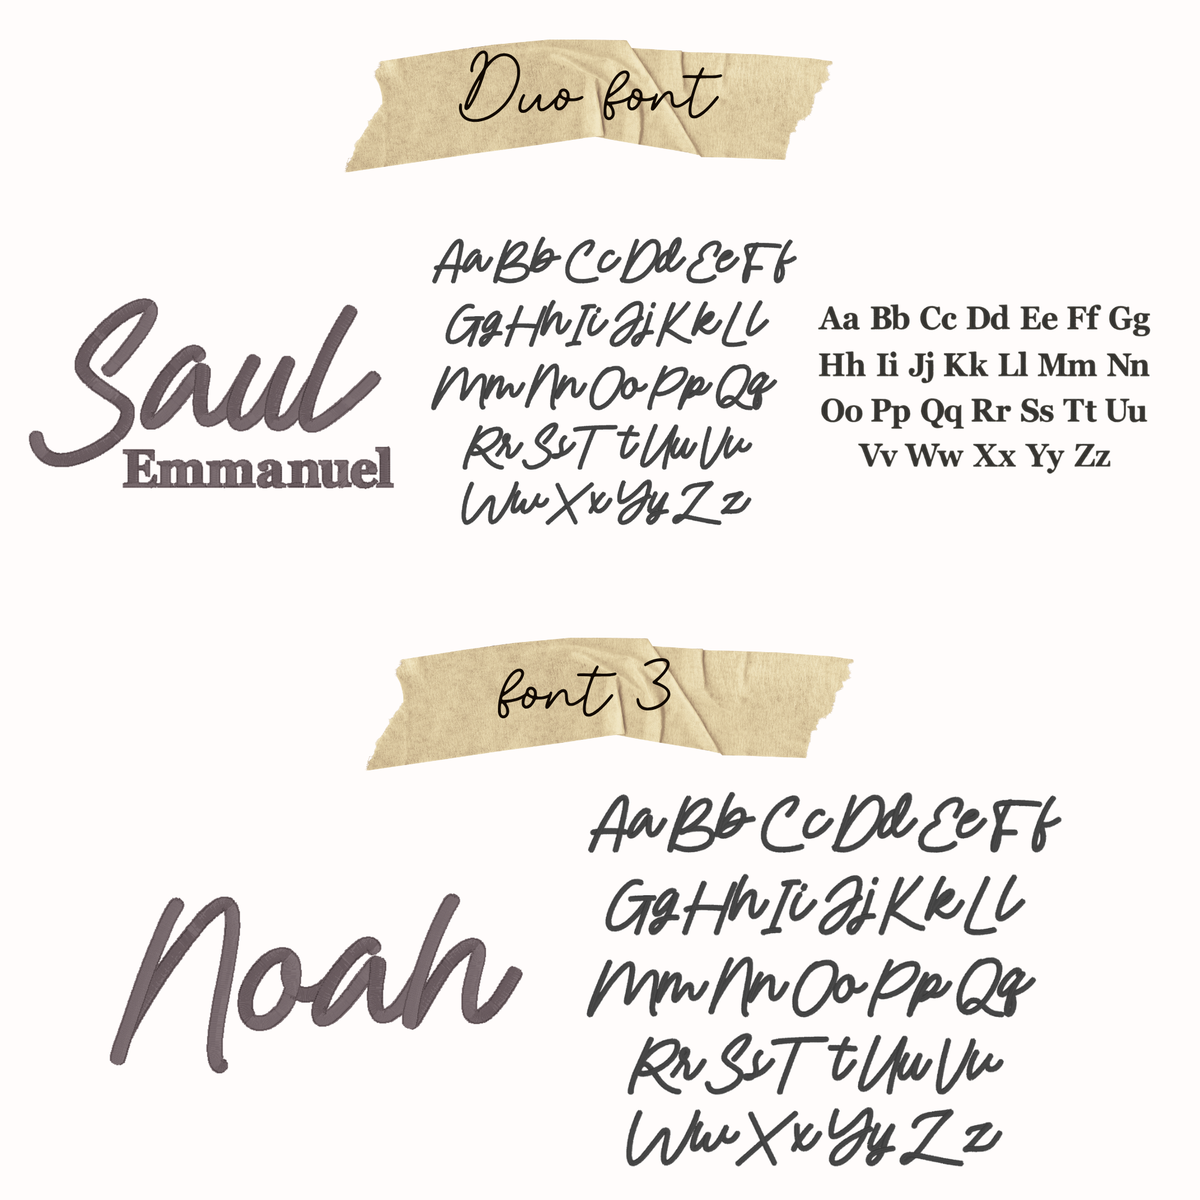 Duo font
Saul
Emmanuel
Aa Bb Cc Dd Ee Ff
Gg Hh Ii Jj Kk Ll
Mm Nn Oo Pp Qq
Rr Ss T t Uu Vv
Ww Xx Yy Zz
Aa Bb Cc Dd Ee Ff Gg
Hh Ii Jj Kk Ll Mm Nn
Oo Pp Qq Rr Ss Tt Uu
Vv Ww Xx Yy Zz
font 3
Noah
Aa Bb Cc Dd Ee Ff
Gg Hh Ii Jj Kk Ll
Mm Nn Oo Pp Qq
Rr Ss T t Uu Vv
Ww Xx Yy Zz